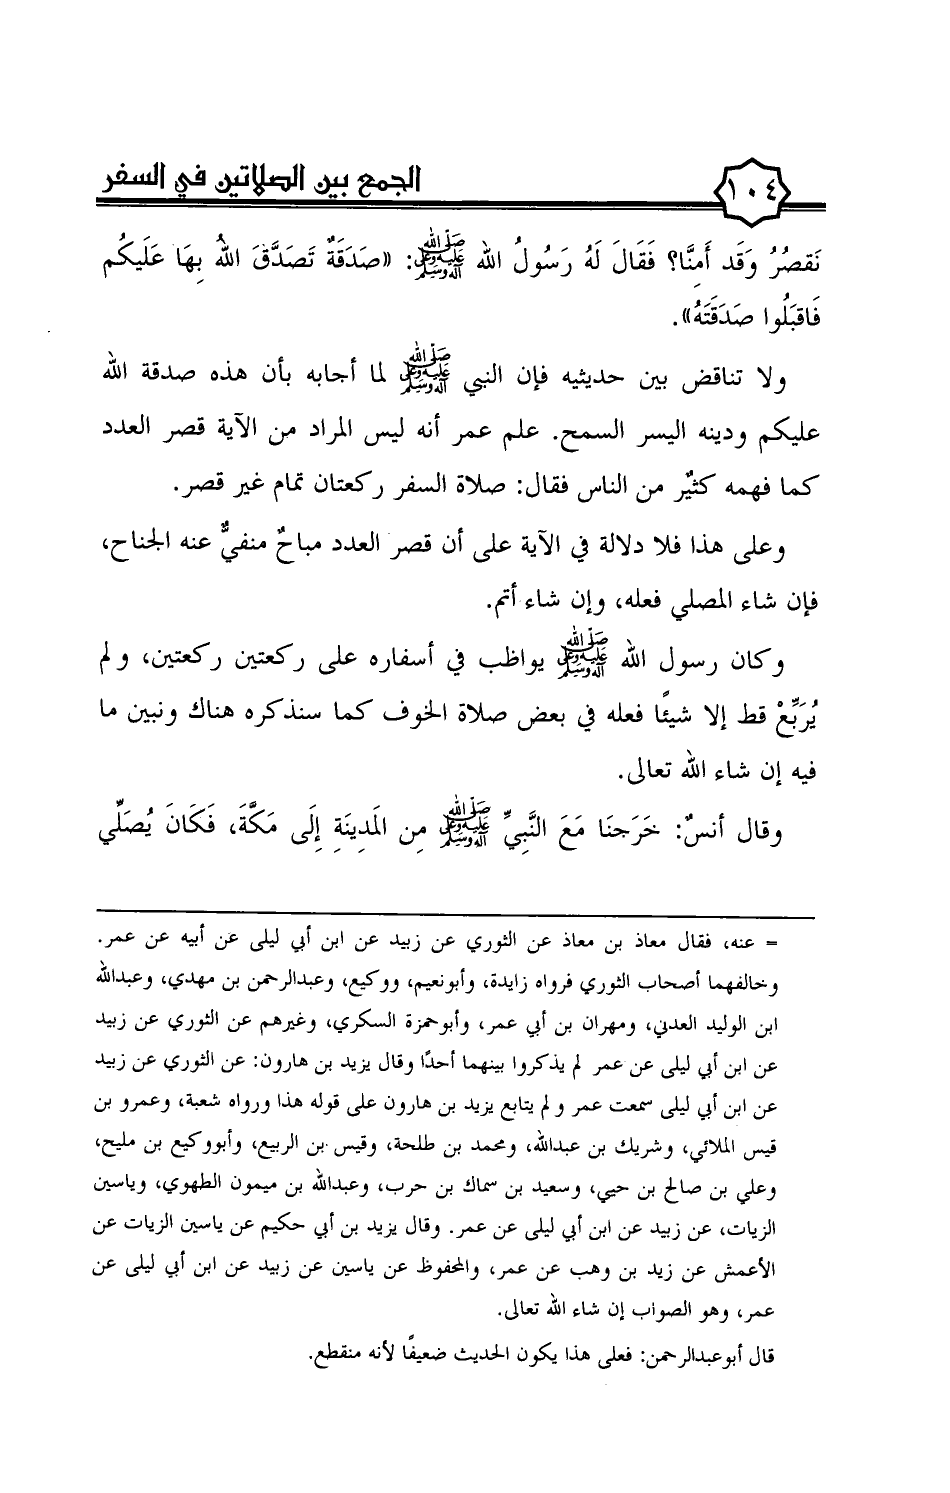 ١٠٤
الجمع بين الصلاتين في السفر
نَقصُرُ وَقَد أَمِنَّا؟ فَقَالَ لَهُ رَسُولُ الله ﷺ: «صَدَقَةٌ تَصَدَّقَ اللهُ بِهَا عَلَيكُم
فَاقبَلُوا صَدَقَتَهُ».
ولا تناقض بين حديثيه فإن النبي ﷺ لما أجابه بأن هذه صدقة الله
عليكم ودينه اليسر السمح. علم عمر أنه ليس المراد من الآية قصر العدد
كما فهمه كثيٌر من الناس فقال: صلاة السفر ركعتان تمام غير قصر.
وعلى هذا فلا دلالة في الآية على أن قصر العدد مباحٌ منفيٌّ عنه الجناح،
فإن شاء المصلي فعله، وإن شاء أتم.
وكان رسول الله ﷺ يواظب في أسفاره على ركعتين ركعتين، ولم
يُرَبِّعْ قط إلا شيئًا فعله في بعض صلاة الخوف كما سنذكره هناك ونبين ما
فيه إن شاء الله تعالى.
وقال أنسٌ: خَرَجنَا مَعَ النَّبِيِّ ﷺ مِن المَدِينَةِ إِلَى مَكَّةَ، فَكَانَ يُصَلِّي
= عنه، فقال معاذ بن معاذ عن الثوري عن زبيد عن ابن أبي ليلى عن أبيه عن عمر.
وخالفهما أصحاب الثوري فرواه زايدة، وأبونعيم، ووكيع، وعبدالرحمن بن مهدي، وعبدالله
ابن الوليد العدني، ومهران بن أبي عمر، وأبوحمزة السكري، وغيرهم عن الثوري عن زبيد
عن ابن أبي ليلى عن عمر لم يذكروا بينهما أحدًا وقال يزيد بن هارون: عن الثوري عن زبيد
عن ابن أبي ليلى سمعت عمر ولم يتابع يزيد بن هارون على قوله هذا ورواه شعبة، وعمرو بن
قيس الملائي، وشريك بن عبدالله، ومحمد بن طلحة، وقيس بن الربيع، وأبووكيع بن مليح،
وعلي بن صالح بن حيي، وسعيد بن سماك بن حرب، وعبدالله بن ميمون الطهوي، وياسين
الزيات، عن زبيد عن ابن أبي ليلى عن عمر. وقال يزيد بن أبي حكيم عن ياسين الزيات عن
الأعمش عن زيد بن وهب عن عمر، والمحفوظ عن ياسين عن زبيد عن ابن أبي ليلى عن
عمر، وهو الصواب إن شاء الله تعالى.
قال أبوعبدالرحمن: فعلى هذا يكون الحديث ضعيفًا لأنه منقطع.